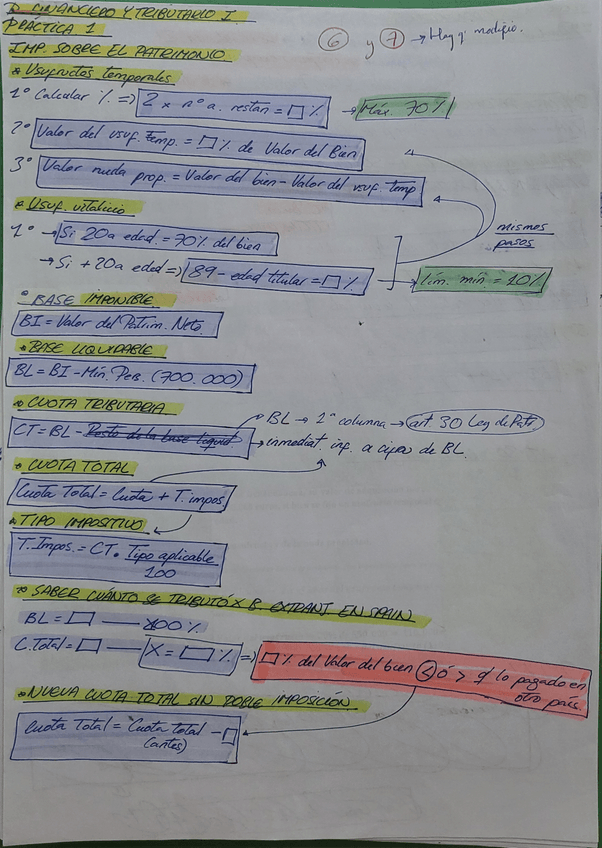 D. FINANCIERO Y TRIBUTARIO I.
PRÁCTICA 1
⑥ y ⑦ → hay q' modific.
IMP. SOBRE EL PATRIMONIO
* Usufructos temporales
1º Calcular % => 2 x nº a. restan = □% → Máx. 70%
2º Valor del usuf. temp. = □% de Valor del Bien
3º Valor nuda prop. = Valor del bien - Valor del usuf. temp
* Usuf. vitalicio
1º → Si 20a edad = 70% del bien
mismos pasos
→ Si + 20a edad => 89 - edad titular = □% → Lím. mín = 10%
* BASE IMPONIBLE
BI = Valor del Patrim. Neto
* BASE LIQUIDABLE
BL = BI - Mín. Per. (700.000)
* CUOTA TRIBUTARIA
BL → 1ª columna → art. 30 Ley de Patr
CT = BL - Resto de la base liquid.
→ inmediat. inf. a cifra de BL
* CUOTA TOTAL
Cuota Total = Cuota + T. impos
* TIPO IMPOSITIVO
T. Impos. = CT • Tipo aplicable
100
* SABER CUÁNTO SE TRIBUTÓ X B. EXTRANJ EN SPAIN
BL = □ — 100%
C. Total = □ — X = □% => □% del Valor del bien < ó > q' lo pagado en
otro país.
* NUEVA CUOTA TOTAL SIN DOBLE IMPOSICIÓN
Cuota Total = Cuota total - □
(antes)